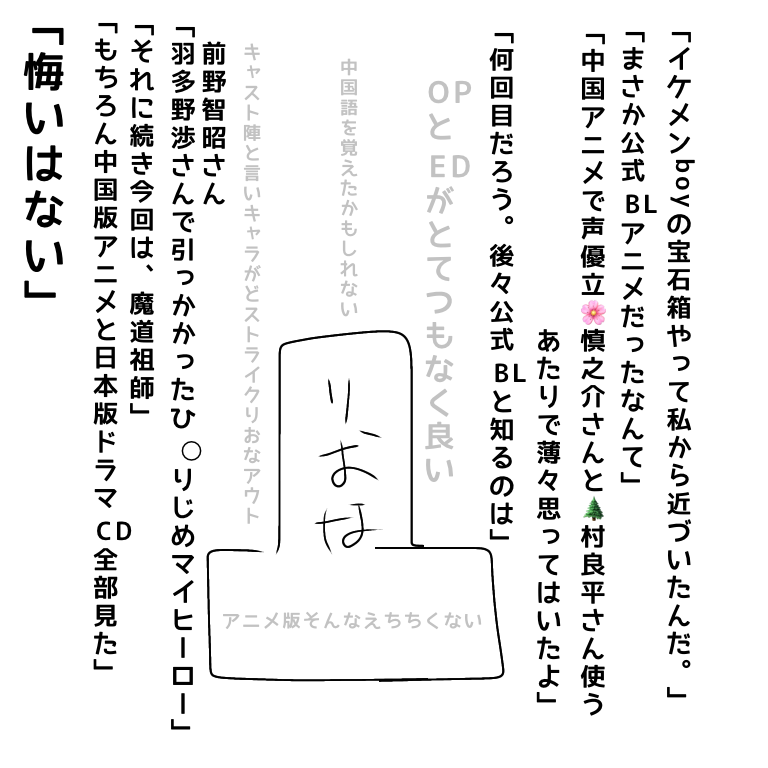 「イケメンboyの宝石箱やって私から近づいたんだ。」
「まさか公式BLアニメだったなんて」
「中国アニメで声優立🌸慎之介さんと🌲村良平さん使う
あたりで薄々思ってはいたよ」
「何回目だろう。後々公式BLと知るのは」
OPとEDがとてつもなく良い
中国語を覚えたかもしれない
キャスト陣と言いキャラがどストライクりおなアウト
りおな
アニメ版そんなえちちくない
前野智昭さん
「羽多野渉さんで引っかかったひ○りじめマイヒーロー」
「それに続き今回は、魔道祖師」
「もちろん中国版アニメと日本版ドラマCD全部見た」
「悔いはない」